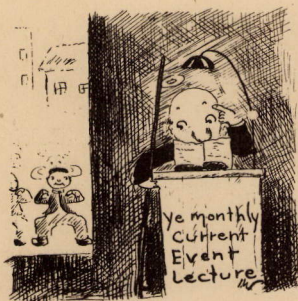 ye monthly
Current
Event
Lecture